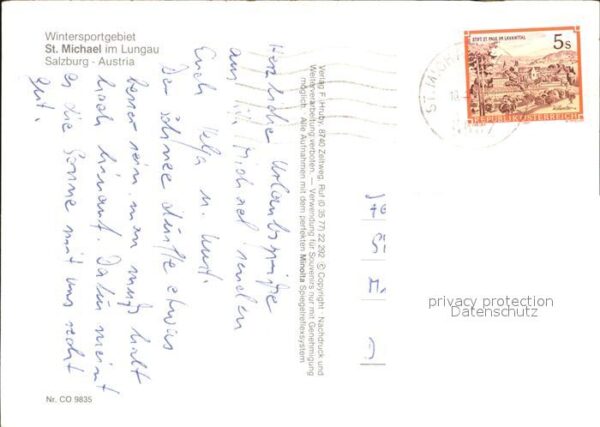 Wintersportgebiet
St. Michael im Lungau
Salzburg - Austria
Herzliche Urlaubsgrüße
aus St. Michael senden
Euch Helga u. Kurt.
Der Schnee dürfte etwas
besser sein. man muß halt
hoch hinauf. Dafür meint
es die Sonne mit uns recht
gut.
Verlag F. Hruby, 8740 Zeltweg, Ruf (0 35 77) 22 292 © Copyright Nachdruck und
Weiterverarbeitung verboten. — Verwendung für Souvenirs nur mit Genehmigung
möglich. Alle Aufnahmen mit dem perfekten Minolta Spiegelreflexsystem
STIFT ST. PAUL IM LAVANTTAL
5s
REPUBLIK ÖSTERREICH
ST. MICH
privacy protection
Datenschutz
Nr. CO 9835